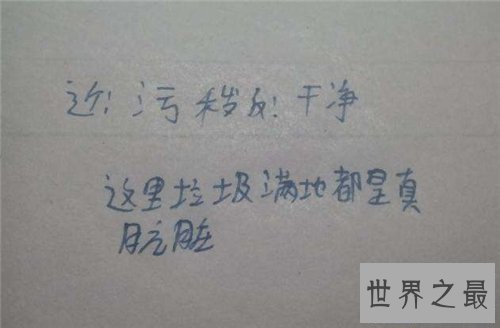 近：污秽反：干净
这里垃圾满地都是真
肮脏
世界之最